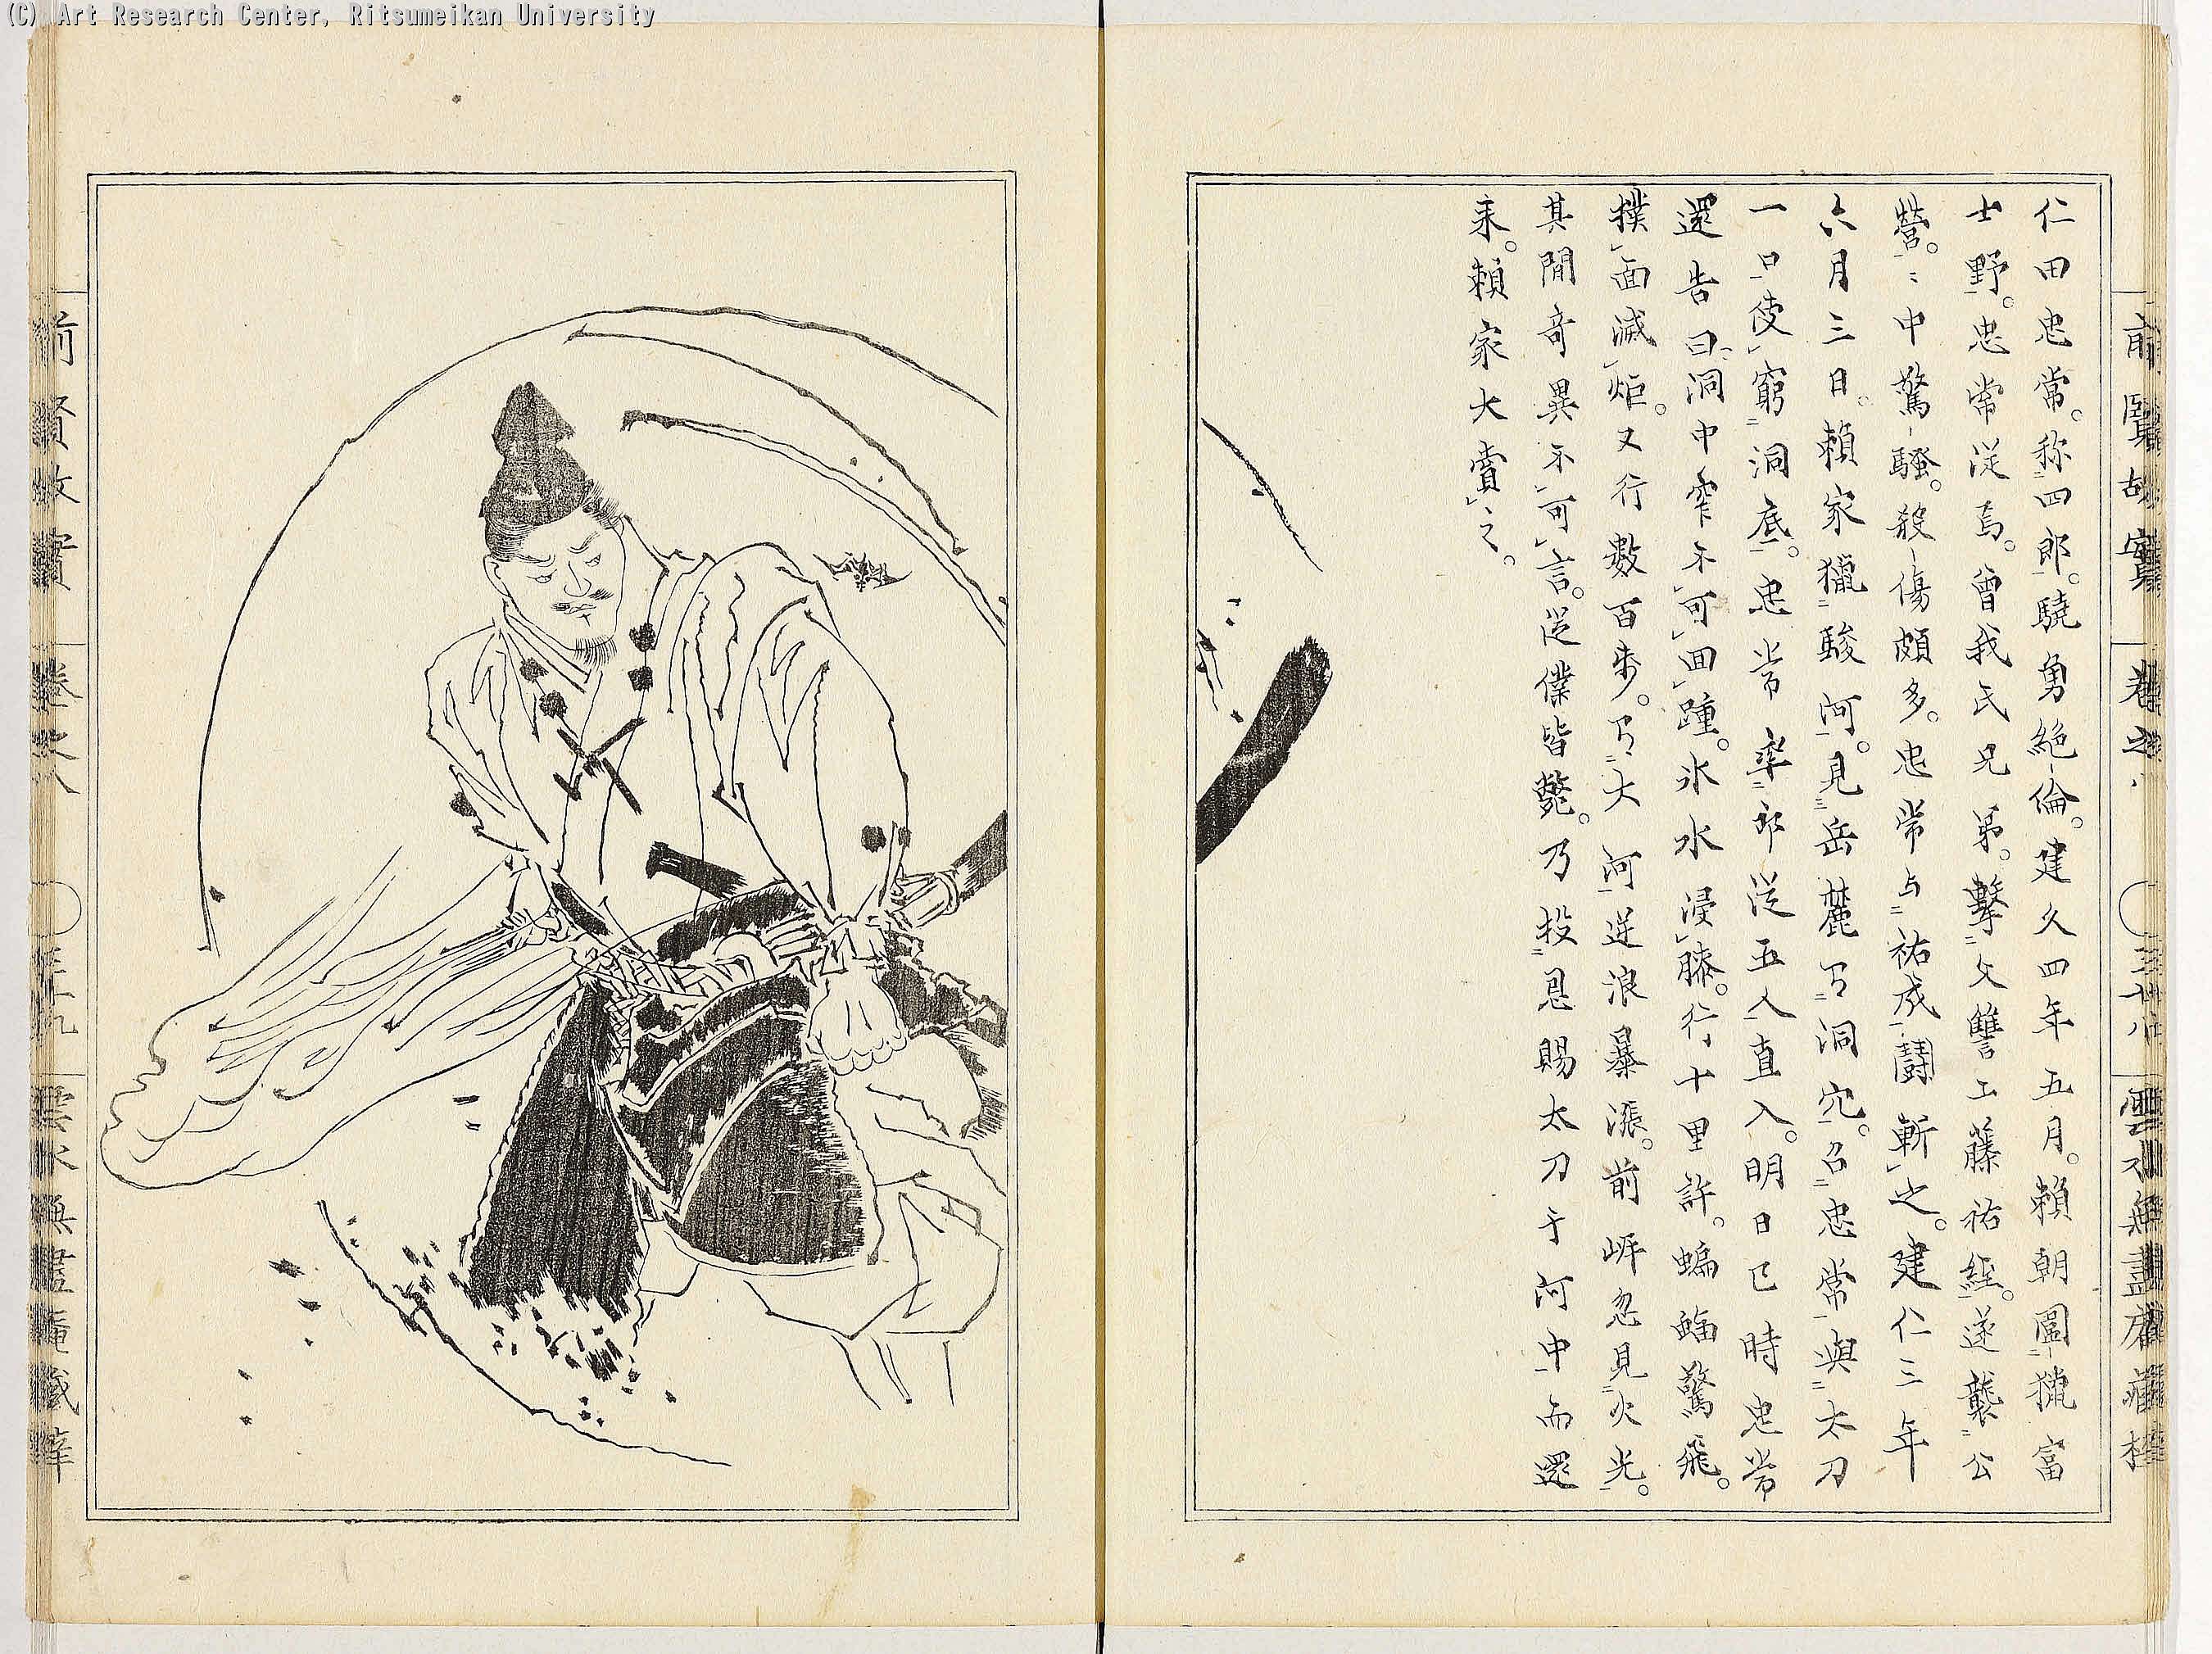 (C) Art Research Center, Ritsumeikan University
前賢故實 卷之八
仁田忠常。称四郎。驍勇絶倫。建久四年五月。頼朝圍猟富
士野。忠常従焉。曾我氏兄弟。擊父讐工藤祐経。遂襲公
營。〻中驚騒。殺傷頗多。忠常与祐成闘斬之。建仁三年
六月三日。頼家獵駿河。見岳麓有洞穴。召忠常與太刀
一口使窮洞底。忠常率郎従五人直入。明日巳時忠常
還告曰。洞中窄不可回踵。氷水浸膝。行十里許。蝙蝠驚飛。
撲面滅炬。又行数百歩。有大河逆浪暴漲。前岼忽見火光。
其間奇異不可言。従僕皆斃。乃投恩賜太刀于河中而還
来。頼家大賞之。
前賢故實 卷之八